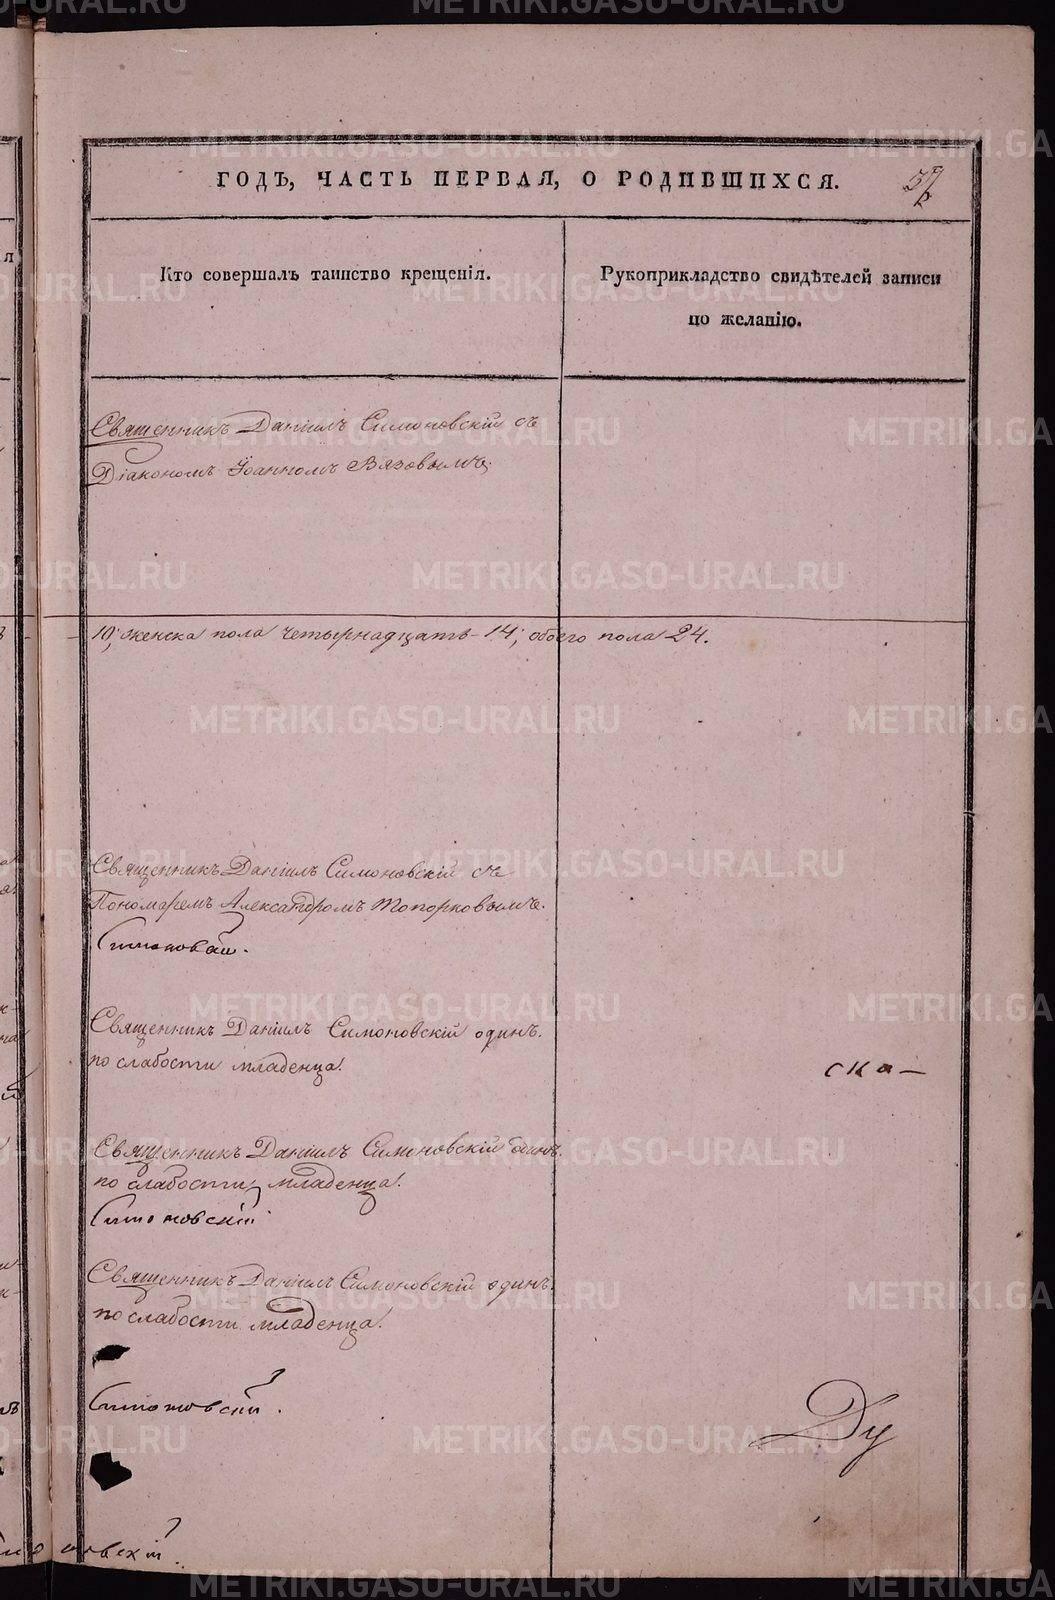 ГОДЪ, ЧАСТЬ ПЕРВАЯ, О РОДИВШИХСЯ.
Кто совершалъ таинство крещенія.
Рукоприкладство свидѣтелей записи
по желанію.
Священникъ Даніилъ Симоновскій съ
Діакономъ Іоанномъ Вязовымъ.
10; женска пола четырнадцать - 14; обоего пола 24.
Священникъ Даніилъ Симоновскій съ
Пономаремъ Александромъ Топорковымъ.
Священникъ Даніилъ Симоновскій одинъ.
по слабости младенца.
ска-
Священникъ Даніилъ Симоновскій одинъ.
по слабости младенца.
Симоновскій
Священникъ Даніилъ Симоновскій одинъ.
по слабости младенца.
Симоновскій.
Ду
METRIKI.GASO-URAL.RU